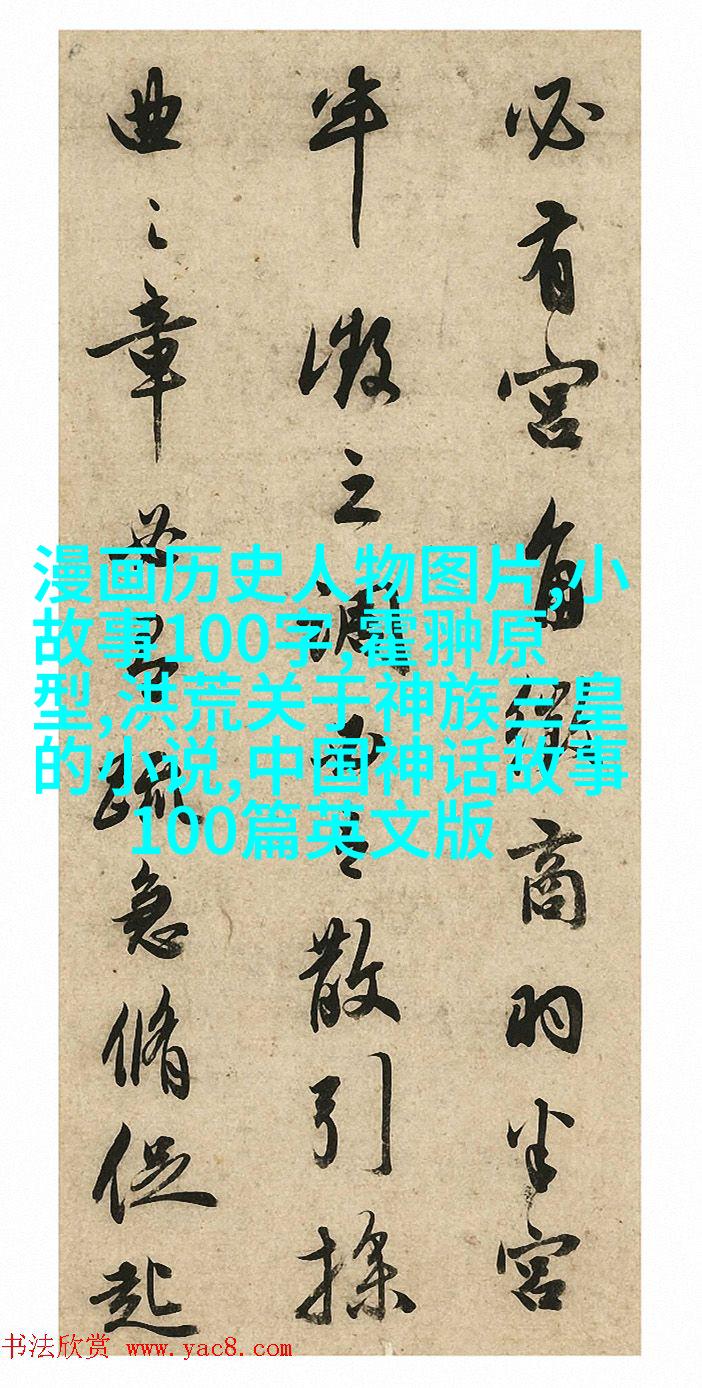 必有宫角徵商羽半宫
半徵之調散引操
曲之章必疏急脩促起
漫画历史人物图片,小
故事100字,霍翀原
型,洪荒关于神族三皇
的小说,中国神话故事
100篇英文版
书法欣赏 www.yac8.com